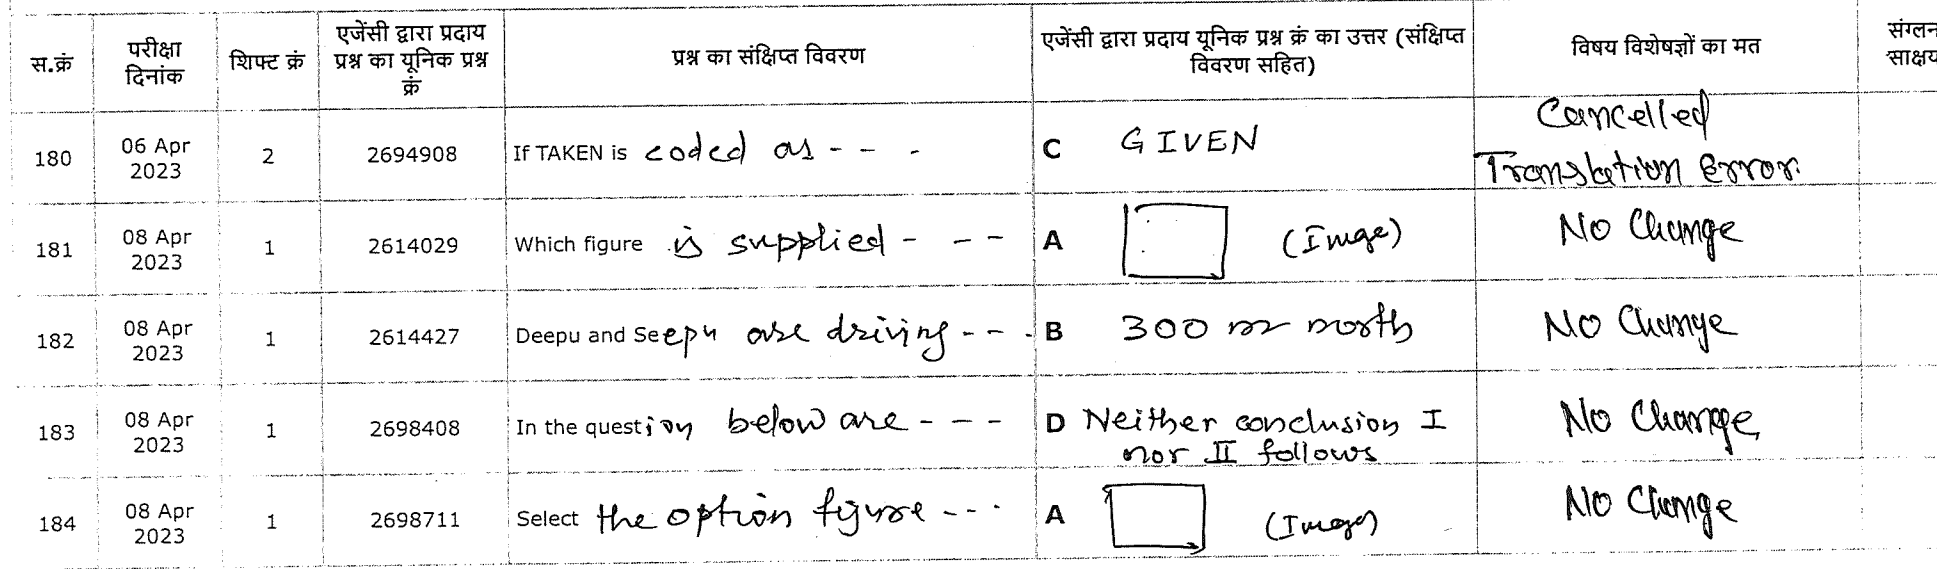 स.क्रं परीक्षा दिनांक शिफ्ट क्रं एजेंसी द्वारा प्रदाय प्रश्न का यूनिक प्रश्न क्रं प्रश्न का संक्षिप्त विवरण एजेंसी द्वारा प्रदाय यूनिक प्रश्न क्रं का उत्तर (संक्षिप्त विवरण सहित) विषय विशेषज्ञों का मत संग्लन साक्ष्य
180 06 Apr 2023 2 2694908 If TAKEN is coded as - - - C GIVEN Cancelled Translation Error.
181 08 Apr 2023 1 2614029 Which figure is supplied - - - A (Image) No Change
182 08 Apr 2023 1 2614427 Deepu and Seepu are driving - - - B 300 m north No Change
183 08 Apr 2023 1 2698408 In the question below are - - - D Neither conclusion I nor II follows No Change
184 08 Apr 2023 1 2698711 Select the option figure - - - A (Image) No Change